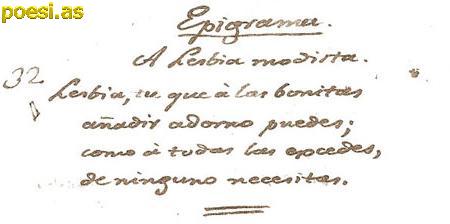 poesi.as
Epigrama.
A Lesbia modista.
32
Lesbia, tu que à las bonitas
añadir adorno puedes;
como à todas las excedes,
de ninguno necesitas.